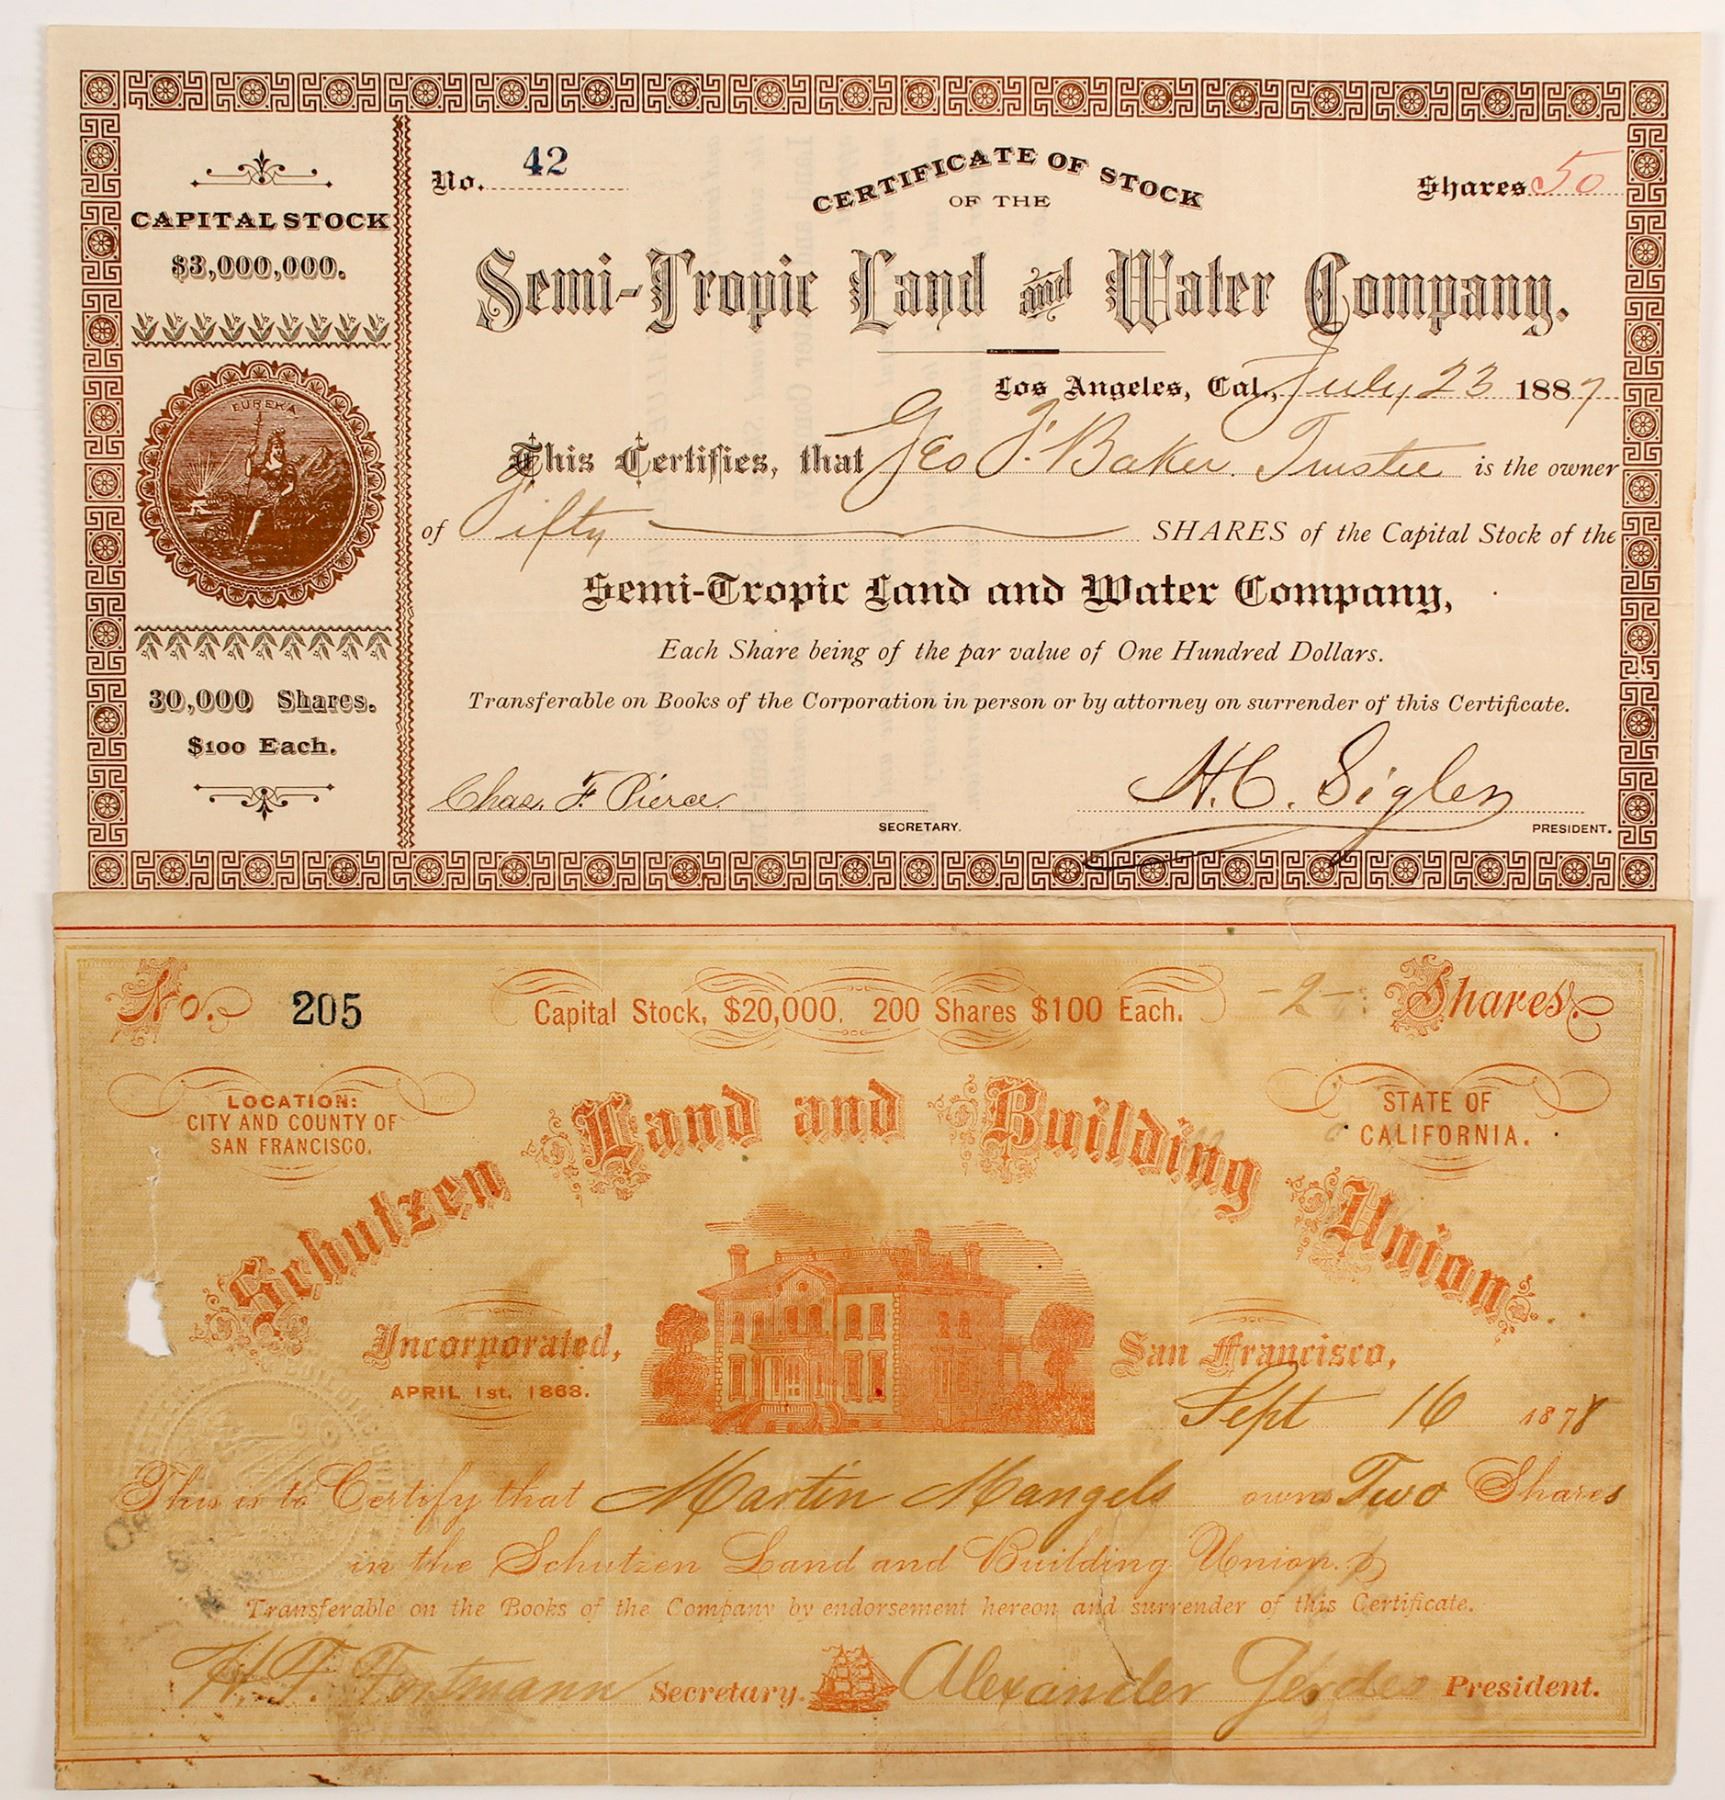 CAPITAL STOCK
$3,000,000.
EUREKA
30,000 Shares.
$100 Each.
No. 42
CERTIFICATE OF STOCK
OF THE
Shares 50
Semi-Tropic Land and Water Company.
Los Angeles, Cal., July 23 1887
This Certifies, that Geo T. Baker Trustee is the owner
of Fifty SHARES of the Capital Stock of the
Semi-Tropic Land and Water Company,
Each Share being of the par value of One Hundred Dollars.
Transferable on Books of the Corporation in person or by attorney on surrender of this Certificate.
Chas. F. Pierce
H. C. Sigler
SECRETARY.
PRESIDENT.
No. 205
Capital Stock, $20,000. 200 Shares $100 Each.
-2- Shares
LOCATION:
CITY AND COUNTY OF
SAN FRANCISCO.
STATE OF
CALIFORNIA.
Schutzen Land and Building Union.
Incorporated,
APRIL 1st, 1868.
San Francisco,
Sept 16 1878
This is to Certify that Martin Mangels owns Two Shares
in the Schutzen Land and Building Union.
Transferable on the Books of the Company by endorsement hereon and surrender of this Certificate.
H. F. Fortmann Secretary. Alexander Gerdes President.